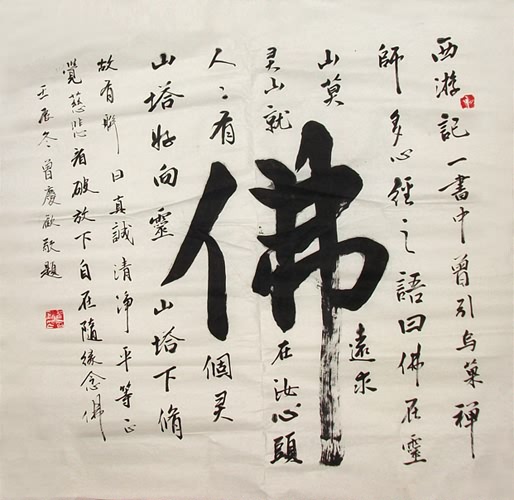 佛
西游記一書中曾引烏巢禪
師多心經之語曰佛在靈
山莫遠求
灵山就在汝心頭
人々有個灵
山塔好向靈山塔下脩
故有聯曰真誠清淨平等正
覺慈悲看破放下自在隨緣念佛
壬辰冬曾慶敬題